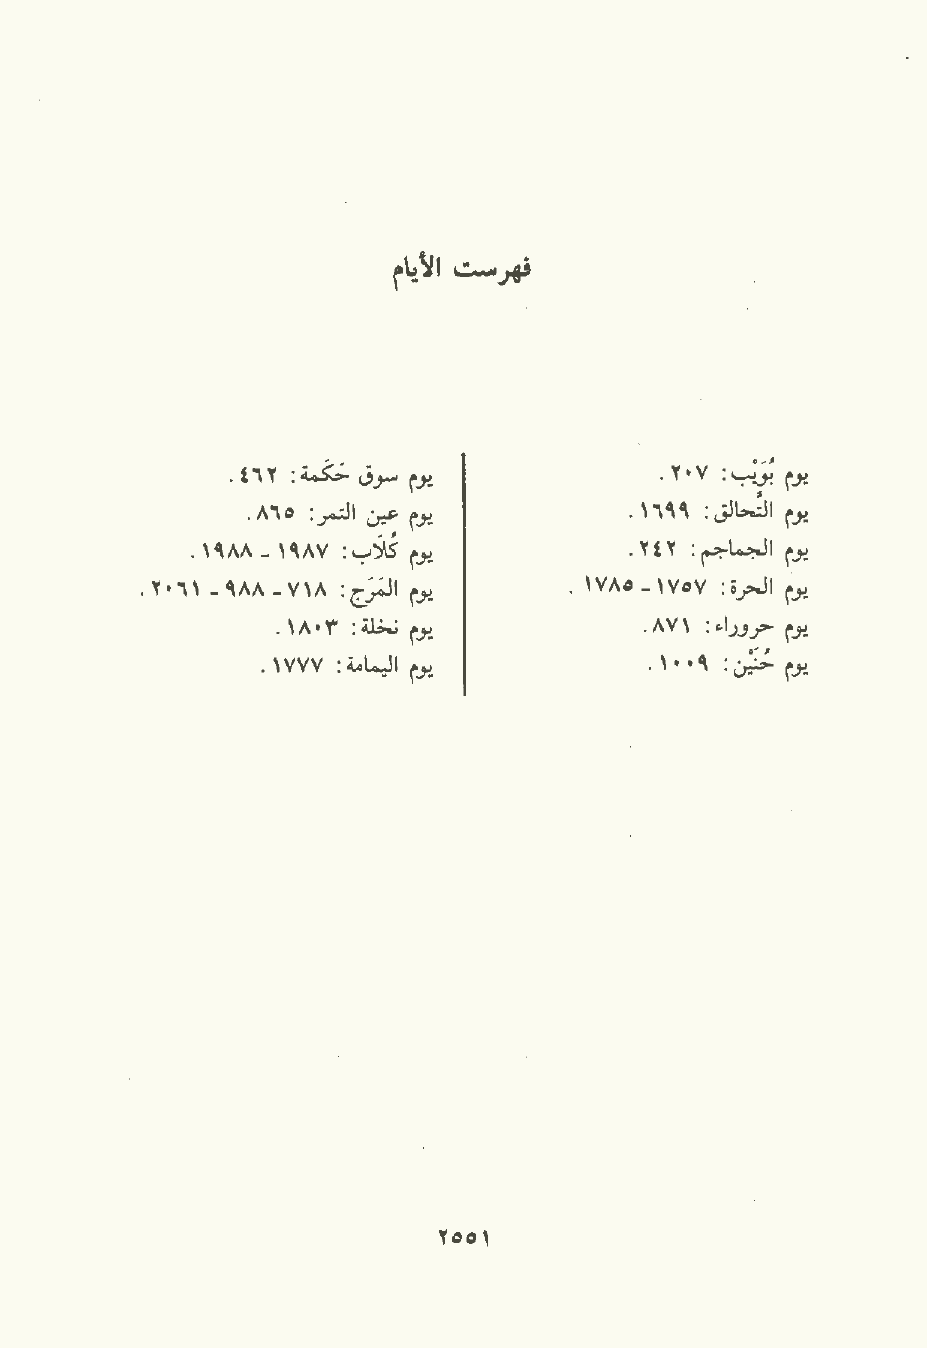 فهرست الأيام
يوم بُوَيْب: ٢٠٧.
يوم التُّحالق: ١٦٩٩.
يوم الجماجم: ٢٤٢.
يوم الحرة: ١٧٥٧ - ١٧٨٥.
يوم حروراء: ٨٧١.
يوم حُنَيْن: ١٠٠٩.
يوم سوق حَكَمة: ٤٦٢.
يوم عين التمر: ٨٦٥.
يوم كُلَاب: ١٩٨٧ - ١٩٨٨.
يوم المَرَج: ٧١٨ - ٩٨٨ - ٢٠٦١.
يوم نخلة: ١٨٠٣.
يوم اليمامة: ١٧٧٧.
٢٥٥١